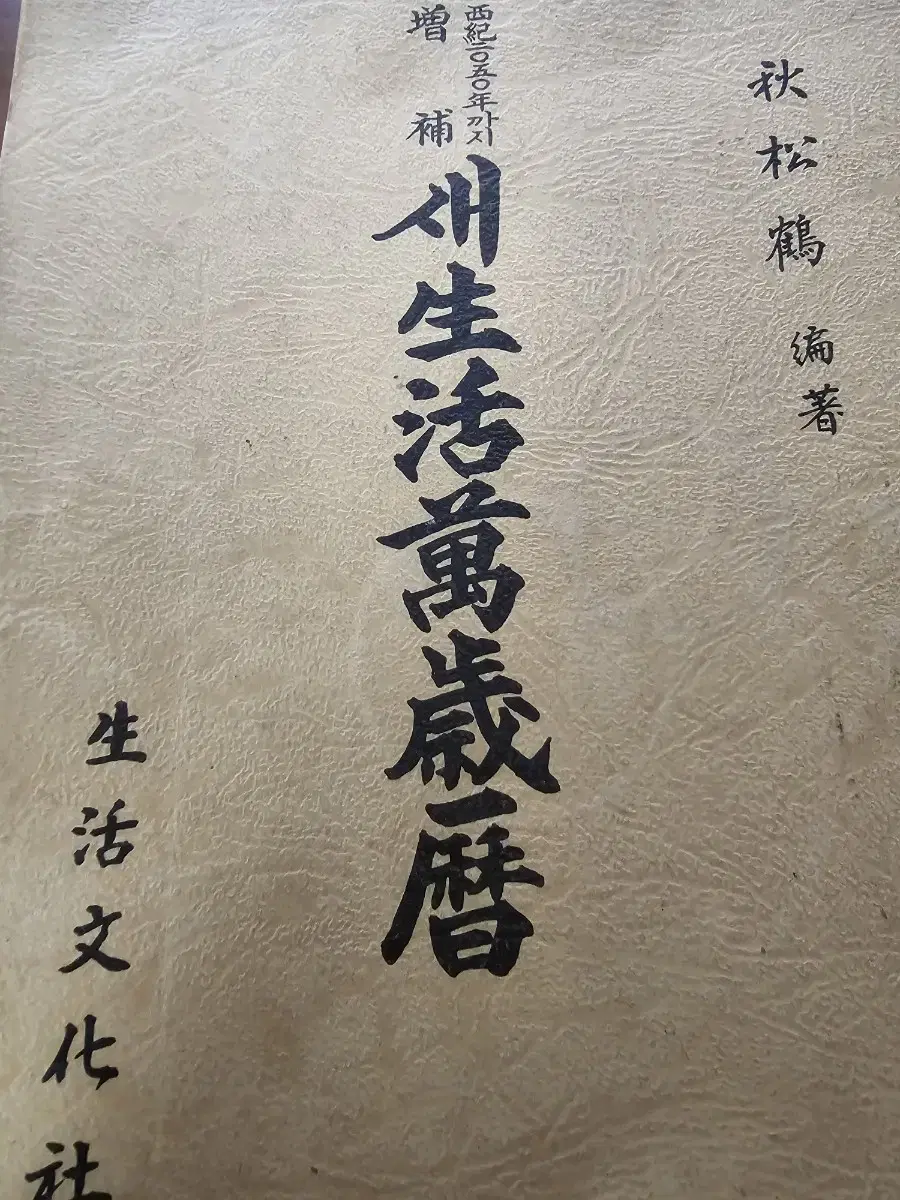 秋松鶴 編著
西紀二○五○年까지
增補
새生活萬歲曆
生活文化社